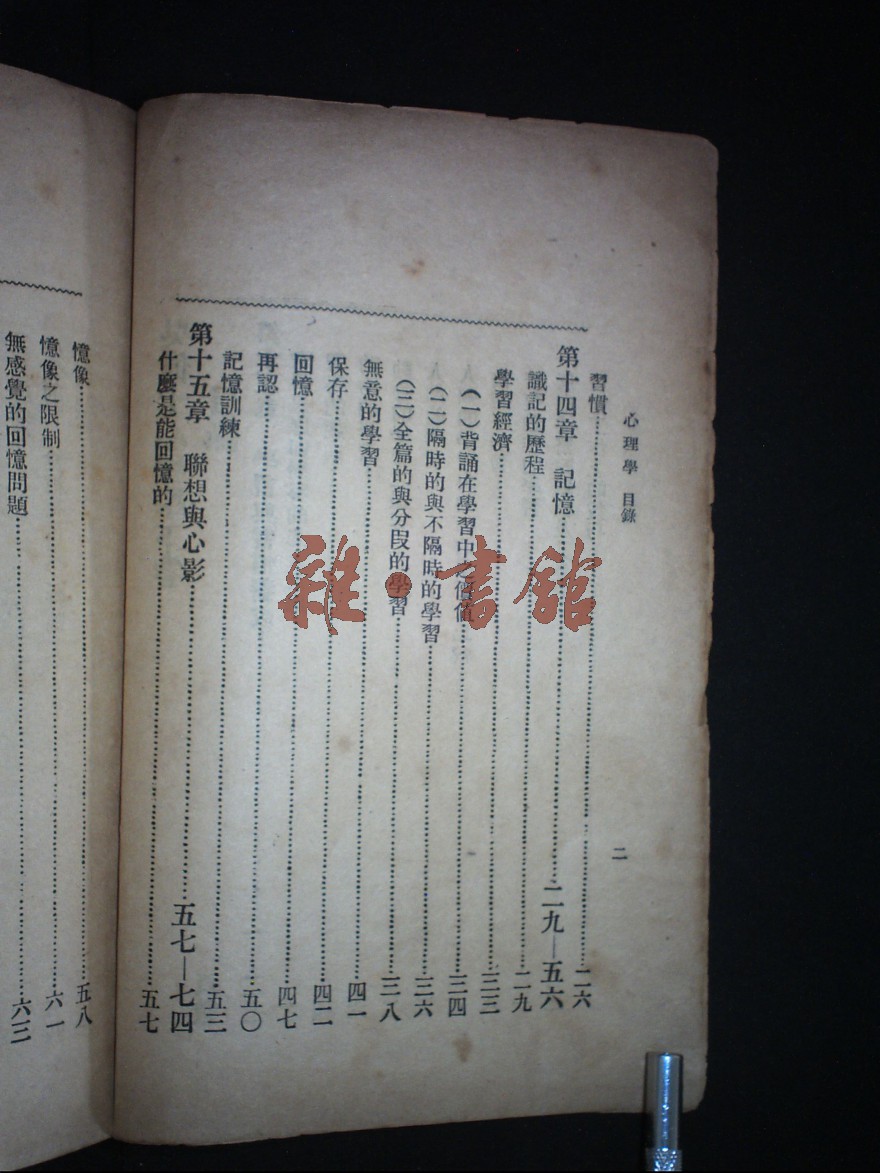 心理學 目錄
二
習慣……二六
第十四章 記憶……二九—五六
識記的歷程……二九
學習經濟……三三
（一）背誦在學習中之價值……三四
（二）隔時的與不隔時的學習……三六
（三）全篇的與分段的學習……三八
無意的學習……四一
保存……四二
回憶……四七
再認……五〇
記憶訓練……五三
第十五章 聯想與心影……五七—七四
什麼是能回憶的……五七
憶像……五八
憶像之限制……六一
無感覺的回憶問題……六三
雜·書館